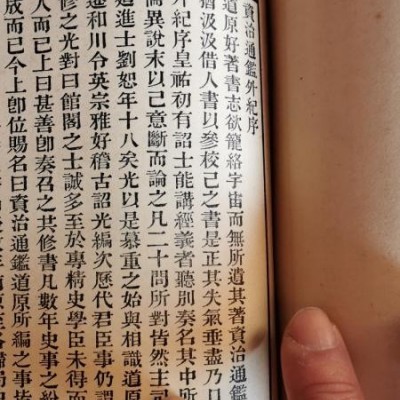 資治通鑑外紀序
道原好著書志欲籠絡宇宙而無所遺其著資治通鑑
猶汲汲借人書以參校己之書是正其失氣垂盡乃口
外紀序皇祐初有詔士能講經義者聽別奏名其中所
儒異說末以己意斷而論之凡二十問所對皆然主司
迺進士劉恕年十八矣光以是慕重之始與相識道原
遷和川令英宗雅好稽古詔光編次歷代君臣事仍謂
修之光對曰館閣之士誠多至於專精史學臣未得而
人而已上曰甚善卽奏召之共修書凡數年史事之紛
成而已今上卽位賜名曰資治通鑑道原所編之事皆